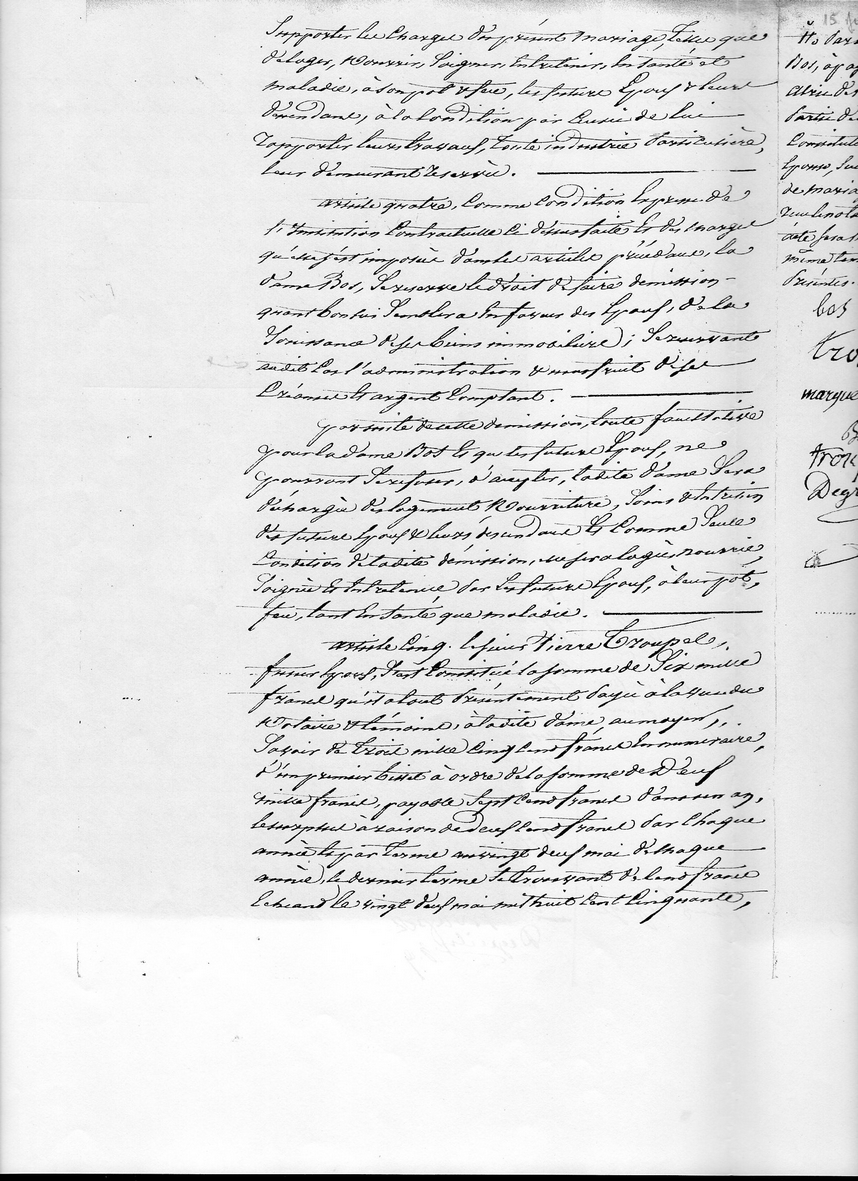 Supporter les Charges du présent mariage, telles que
de loger, Nourrir, Soigner, Entretenir, En Santé et
maladie, à son pot & feu, les future Epoux & leurs
descendans, à la Condition par Ceux-ci de lui
rapporter leurs travaux, toute industrie particulière,
leur demeurant réservée.
article quatre, Comme Condition Expresse de
l'institution Contractuelle Ci dessus faite Et des charges
qu'elle s'est imposée dans les articles précédans, la
dame Bos, Se reserve le droit de faire démission
quant bon lui Semblera En faveur des Epoux, de la
Jouissance de ses biens immobiliers ; Se reservant
audit Cas l'administration & usufruit de ses
Créances Et argent Comptant.
par suite de cette démission, toute facultative
pour la dame Bos Et que les future Epoux, ne
pourront Se refuser, d'accepter, ladite dame Sera
déchargée du logement Nourriture, Soins & Entretien
des future Epoux & leurs descendans Et Comme Seule
Condition de ladite démission, elle sera logée, nourrie,
Soignée Et Entretenue par les future Epoux, à leur pot,
feu, tant En Santé que maladie.
article Cinq. le sieur Pierre Troupel,
futur Epoux, S'est Constitué la somme de Six mille
francs qu'il a tout présentement payée à la vue du
Notaire & témoins, à ladite dame, au moyen,
Savoir de trois mille Cinq Cens francs En numeraire,
d'un premier billet à ordre de la somme de Deux
mille francs, payable Sept Cens francs dans un an,
le surplus à raison de deux Cens francs par Chaque
année Et par terme au vingt deux mai de chaque
année, le dernier terme Se trouvant de Cens francs
Echeant le vingt deux mai mil huit Cent Cinquante,
15
Bos, à
partie de
Constitué
Epoux,
de maria
date sera
même tem
présentes.
bos
tro
marque
B
trou
Degr